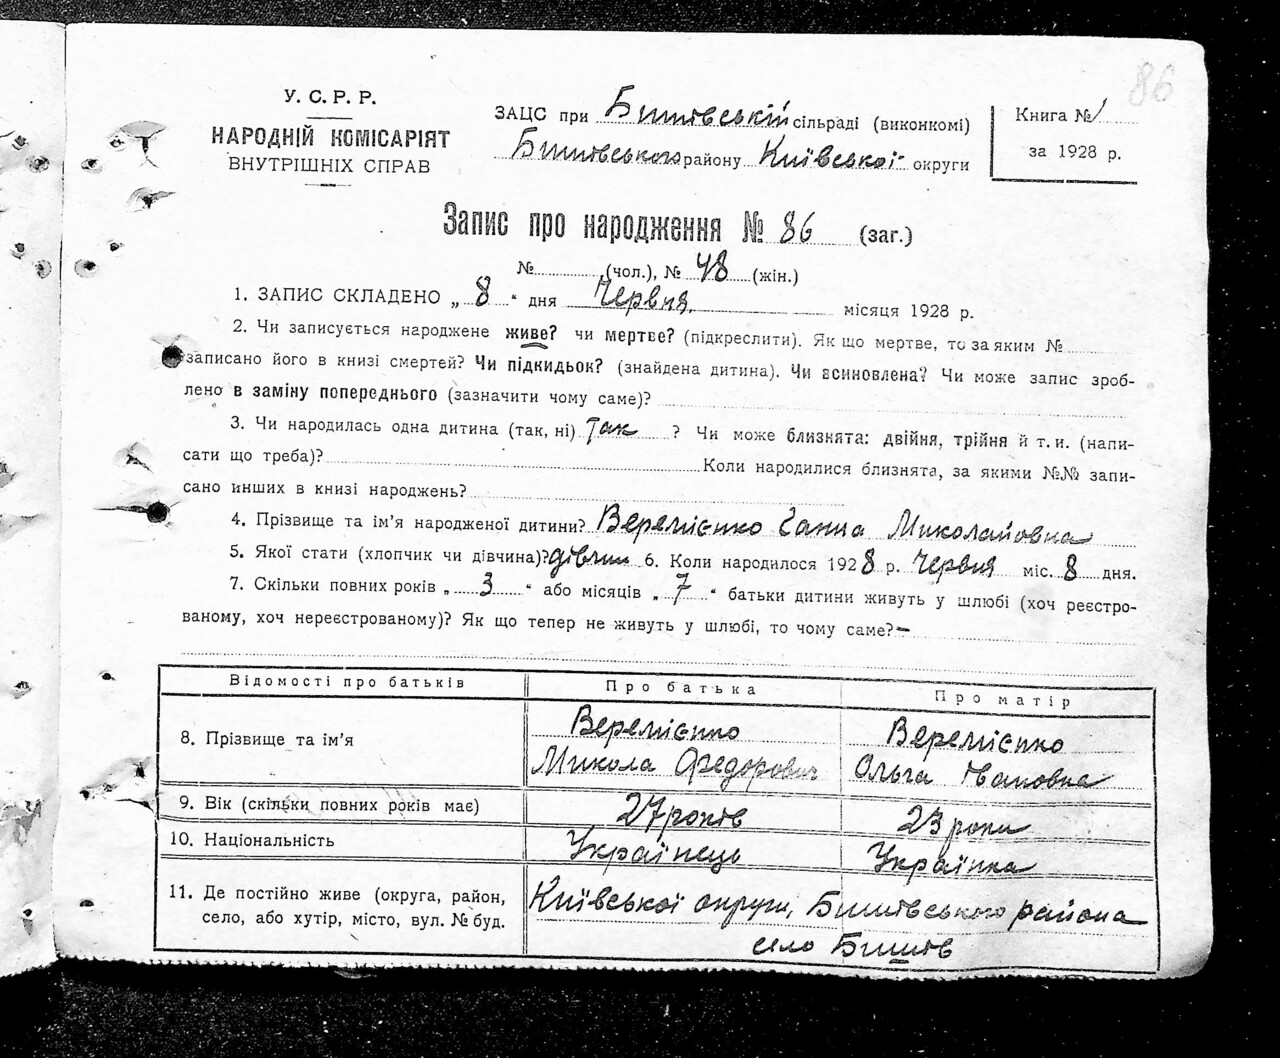 86
У. С. Р. Р.
НАРОДНІЙ КОМІСАРІЯТ
ВНУТРІШНІХ СПРАВ
ЗАЦС при Бишівській сільраді (виконкомі)
Бишівського району Київської округи
Книга № 1
за 1928 р.
Запис про народження № 86 (заг.)
№ (чол.), № 48 (жін.)
1. ЗАПИС СКЛАДЕНО „ 8 “ дня Червня місяця 1928 р.
2. Чи записується народжене живе? чи мертве? (підкреслити). Як що мертве, то за яким №
записано його в книзі смертей? Чи підкидьок? (знайдена дитина). Чи всиновлена? Чи може запис зроб-
лено в заміну попереднього (зазначити чому саме)?
3. Чи народилась одна дитина (так, ні) так ? Чи може близнята: двійня, трійня й т. и. (напи-
сати що треба)? Коли народилися близнята, за якими №№ запи-
сано инших в книзі народжень?
4. Прізвище та ім’я народженої дитини? Веремієнко Ганна Миколайовна
5. Якої стати (хлопчик чи дівчина)? дівчин 6. Коли народилося 1928 р. Червня міс. 8 дня.
7. Скільки повних років „ 3 “ або місяців „ 7 “ батьки дитини живуть у шлюбі (хоч реєстро-
ваному, хоч нереєстрованому)? Як що тепер не живуть у шлюбі, то чому саме? –
Відомості про батьків
Про батька
Про матір
8. Прізвище та ім’я
Веремієнко
Микола Федорович
Веремієнко
Ольга Івановна
9. Вік (скільки повних років має)
27 років
23 роки
10. Національність
Українець
Українка
11. Де постійно живе (округа, район,
село, або хутір, місто, вул. № буд.
Київської округи, Бишівського района
село Бишів